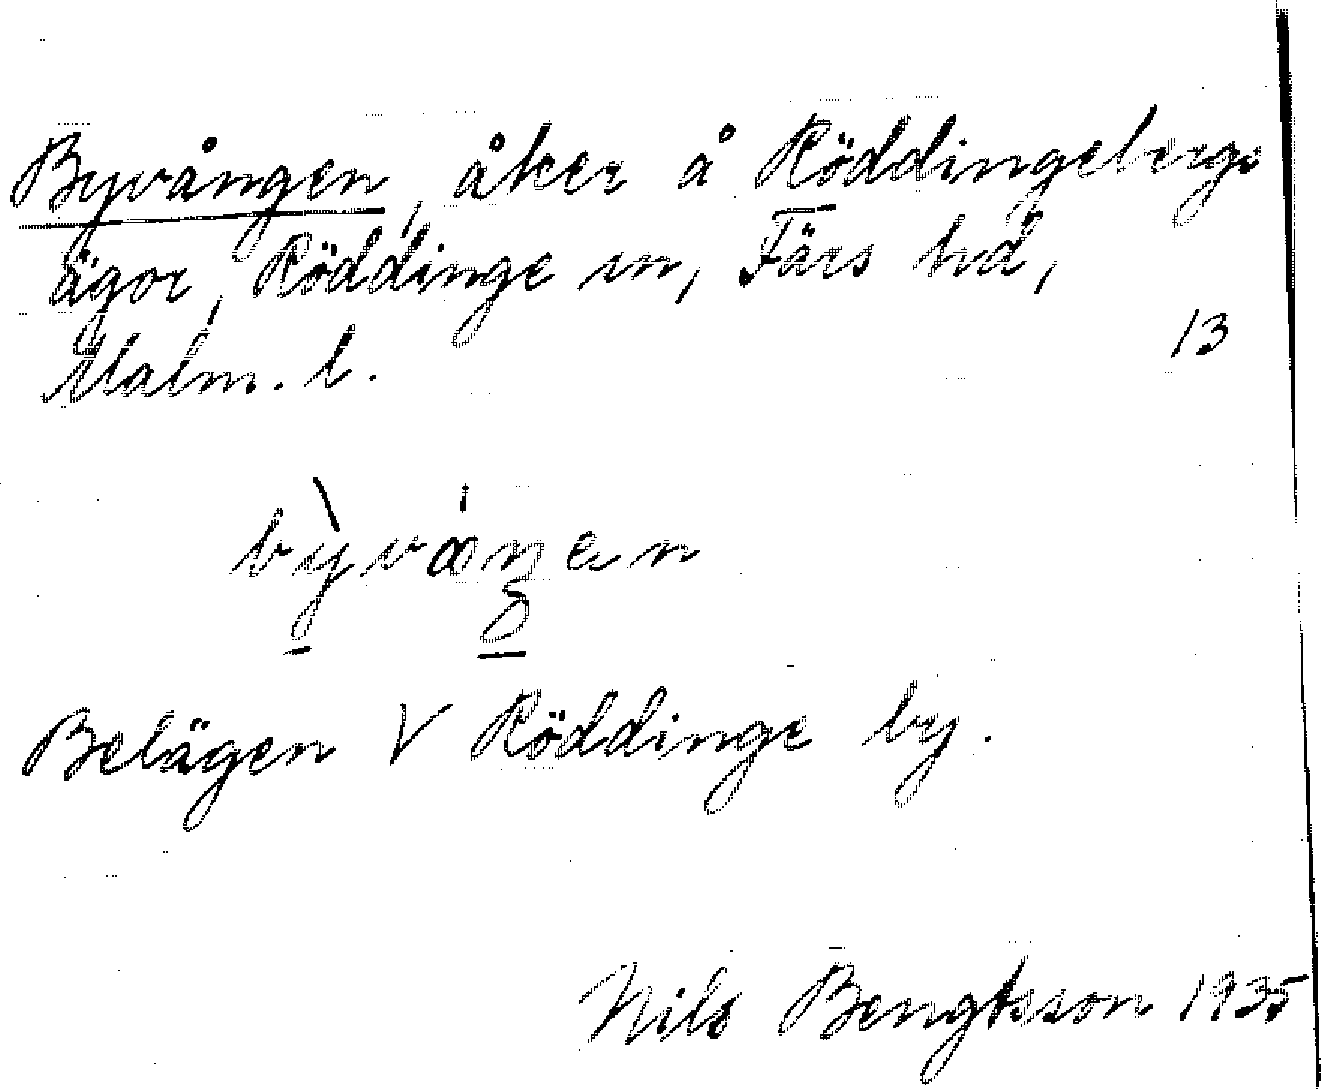 Byvången, åker å Röddingebergs
ägor, Röddinge sn, Färs hd,
Malm. l.
13
Belägen V Röddinge by.
Nils Bengtsson 1935